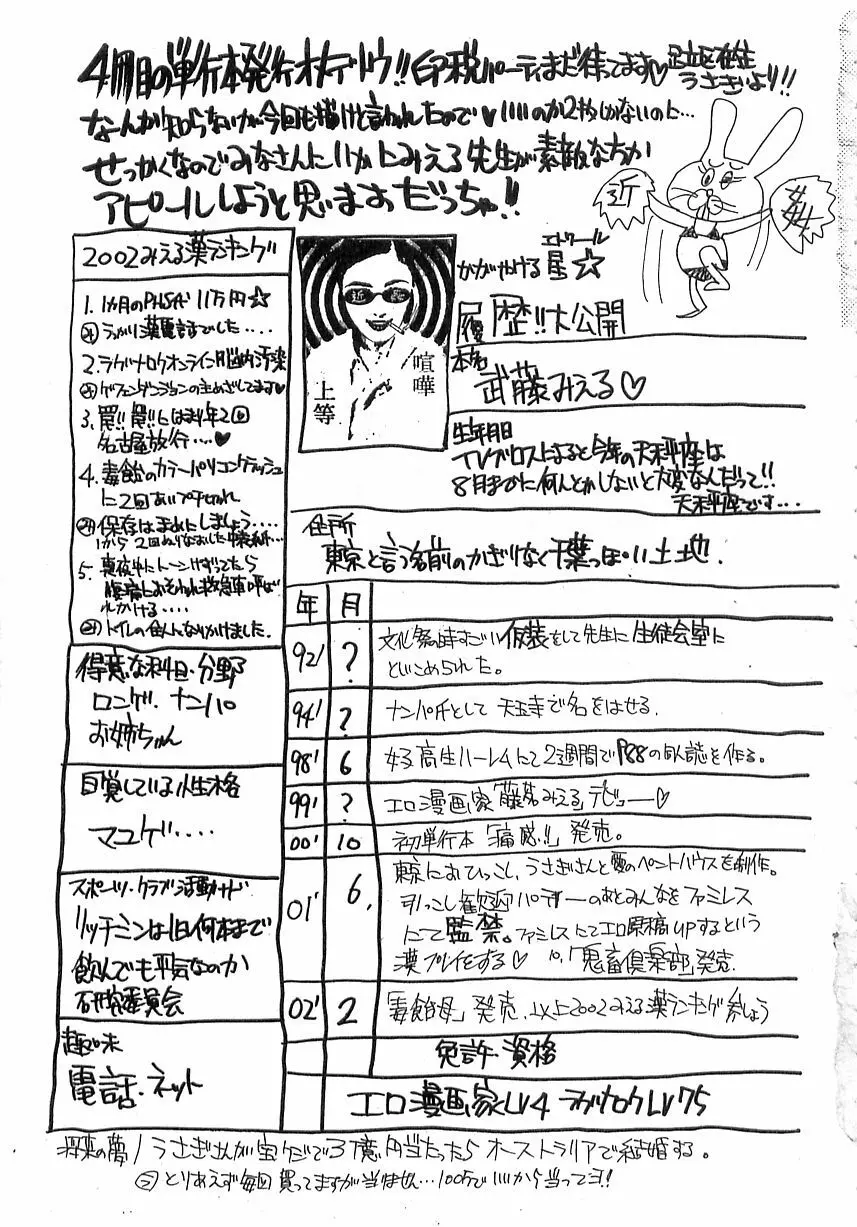 4冊目の単行本発行オメデトウ!!印税パーティまだ待ってます♡足立区在住
うさぎより!!
なーんか知らないが今回も描けと言われたので♥いいのか2枚しかないのに…
せっかくなのでみなさんにいかにみえる先生が素敵な方か
アピールしようと思いますっだっちゃ!!
近
2002みえる薬ランキング
1. 1ヵ月のPHS代 11万円☆
うっかり薬電話でした....
2. ラグナロクオンライン脳内汚染
ゲフェンダンジョンの主めざしてます♥
3. 罠!!罠!!にはまり年2回
名古屋旅行...♥
4. 毒飴のカラーパソコンクラッシュ
に2回
保存はまめにしましょう....
1から2回ぬりなおした
5. 真夜中にトーンけずってたら
腹痛におそわれ救急車呼ば
れかける....
トイレの住人になりかけました.
喧嘩
上等
エトワール
かがやける星☆
履歴!!大公開
本名
武藤みえる♡
生年月日
TVブロスによると今年の天秤座は
8月までに何とかしないと大変なんだって!!
天秤座です...
住所
東京と言う名前のかぎりなく千葉っぽい土地.
年 月
92' ? 文化祭の時すごい仮装をして先生に生徒会室に
といこめられた。
94' ? ナンパ氏として天王寺で名をはせる.
98' 6 女子高生ハーレムにて2週間でP88の同人誌を作る。
99' ? エロ漫画家「藤茗みえる」デビュー♡
00' 10 初単行本「痛感!!」発売。
01' 6. 東京におひっこし、うさぎさんと愛のペントハウスを制作。
引っこし歓迎パーティーのあとみんなをファミレス
にて監禁。ファミレスにてエロ原稿UPするという
漢プレイをする♡ 10,「鬼畜倶楽部」発売.
02' 2 「毒飴母」発売.以上2002みえる薬ランキング参しょう
免許・資格
エロ漫画家LV4 ラグナロクLV75
得意な科目・分野
ロンゲ・ナンパ
お姉ちゃん
自覚している性格
マユゲ....
スポーツ・クラブ活動など
リッチミンは1日何本まで
飲んでも平気なのか
研究委員会
趣味
電話・ネット
将来の夢/うさぎさんが宝クジで3億円当たったらオーストラリアで結婚する。
とりあえず毎回買ってますが当りません...100万でいいから当ってヨ!!